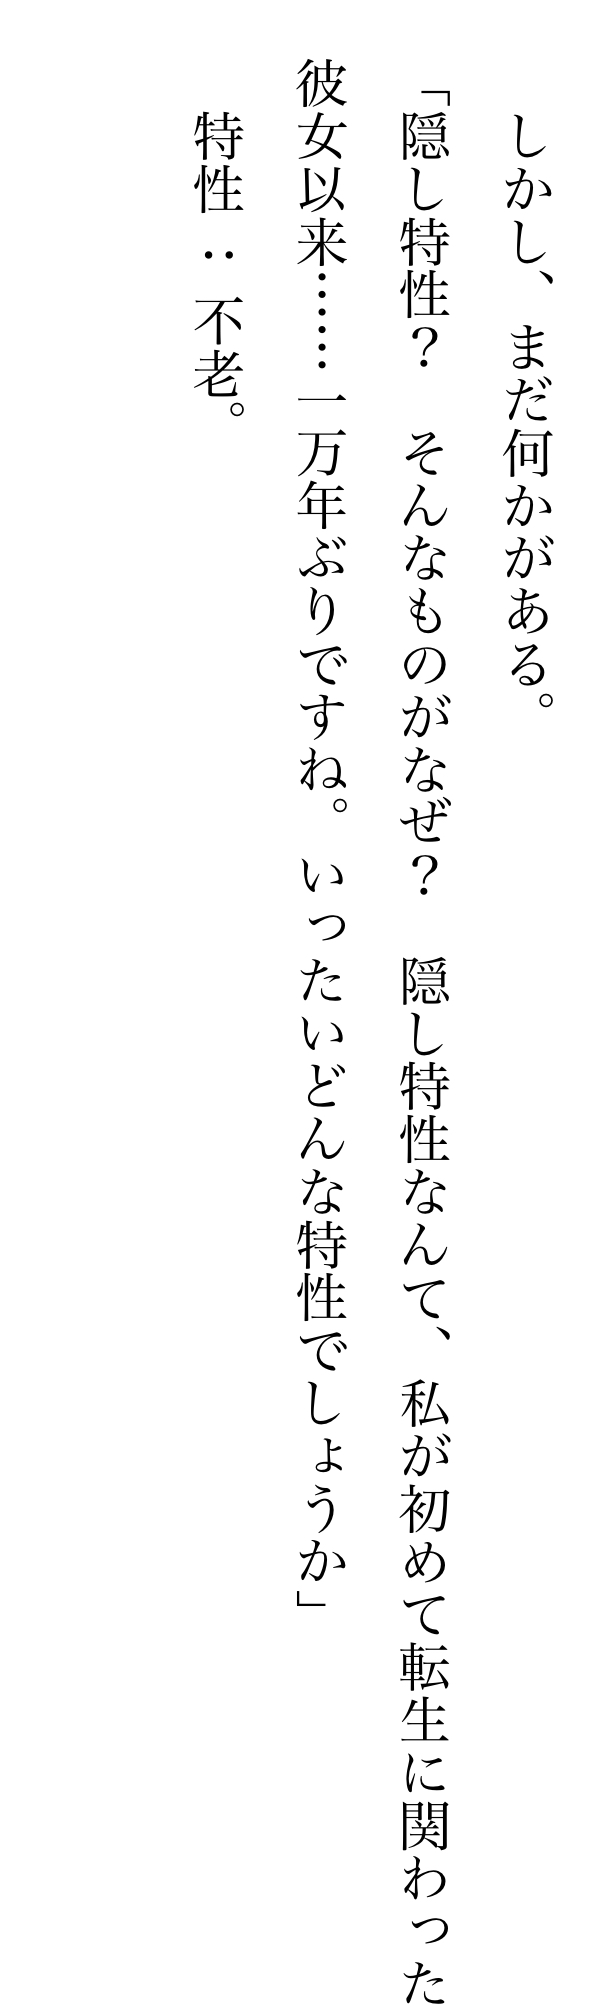 しかし、まだ何かがある。
「隠し特性？　そんなものがなぜ？　隠し特性なんて、私が初めて転生に関わった
彼女以来……一万年ぶりですね。いったいどんな特性でしょうか」
　特性：不老。